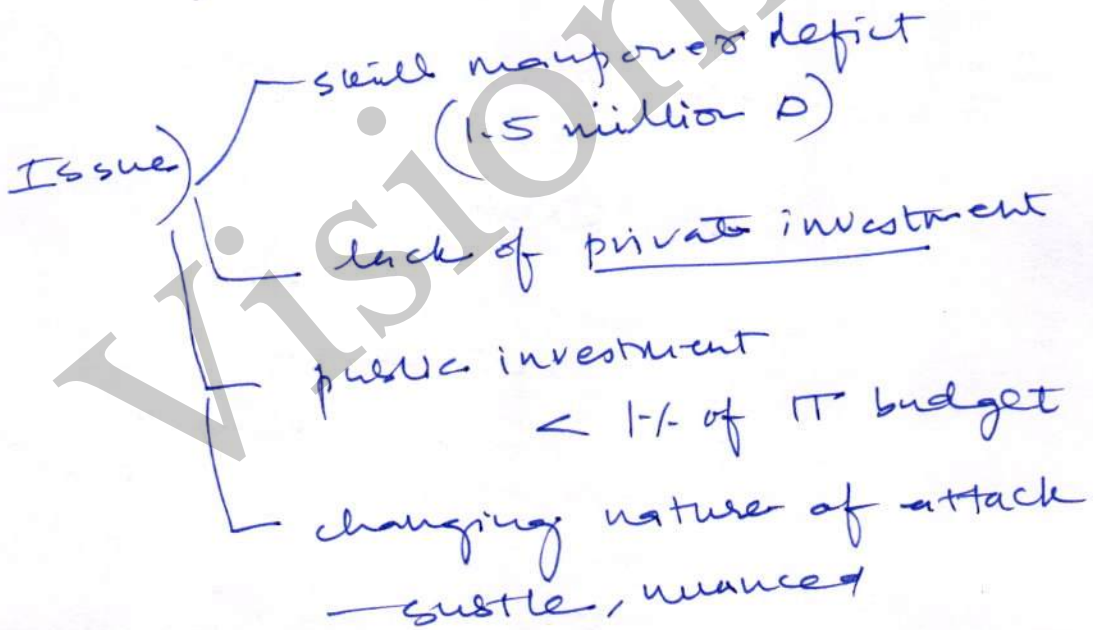 skill manpower deficit
(1.5 million D)
Issue)
lack of private investment
public investment
< 1% of IT budget
changing nature of attack
— sustle, nuanced
Vision